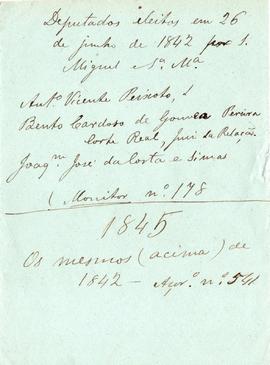 Deputados eleitos em 26
de junho de 1842 por S.
Miguel e Sª Mª
Antº Vicente Peixoto,
Bento Cardoso de Gouvea Pereira
Corte Real, Juiz da Relação.
Joaqm José da Costa e Simas
(Monitor nº 178
1845
Os mesmos (acima) de
1842 — nº 541